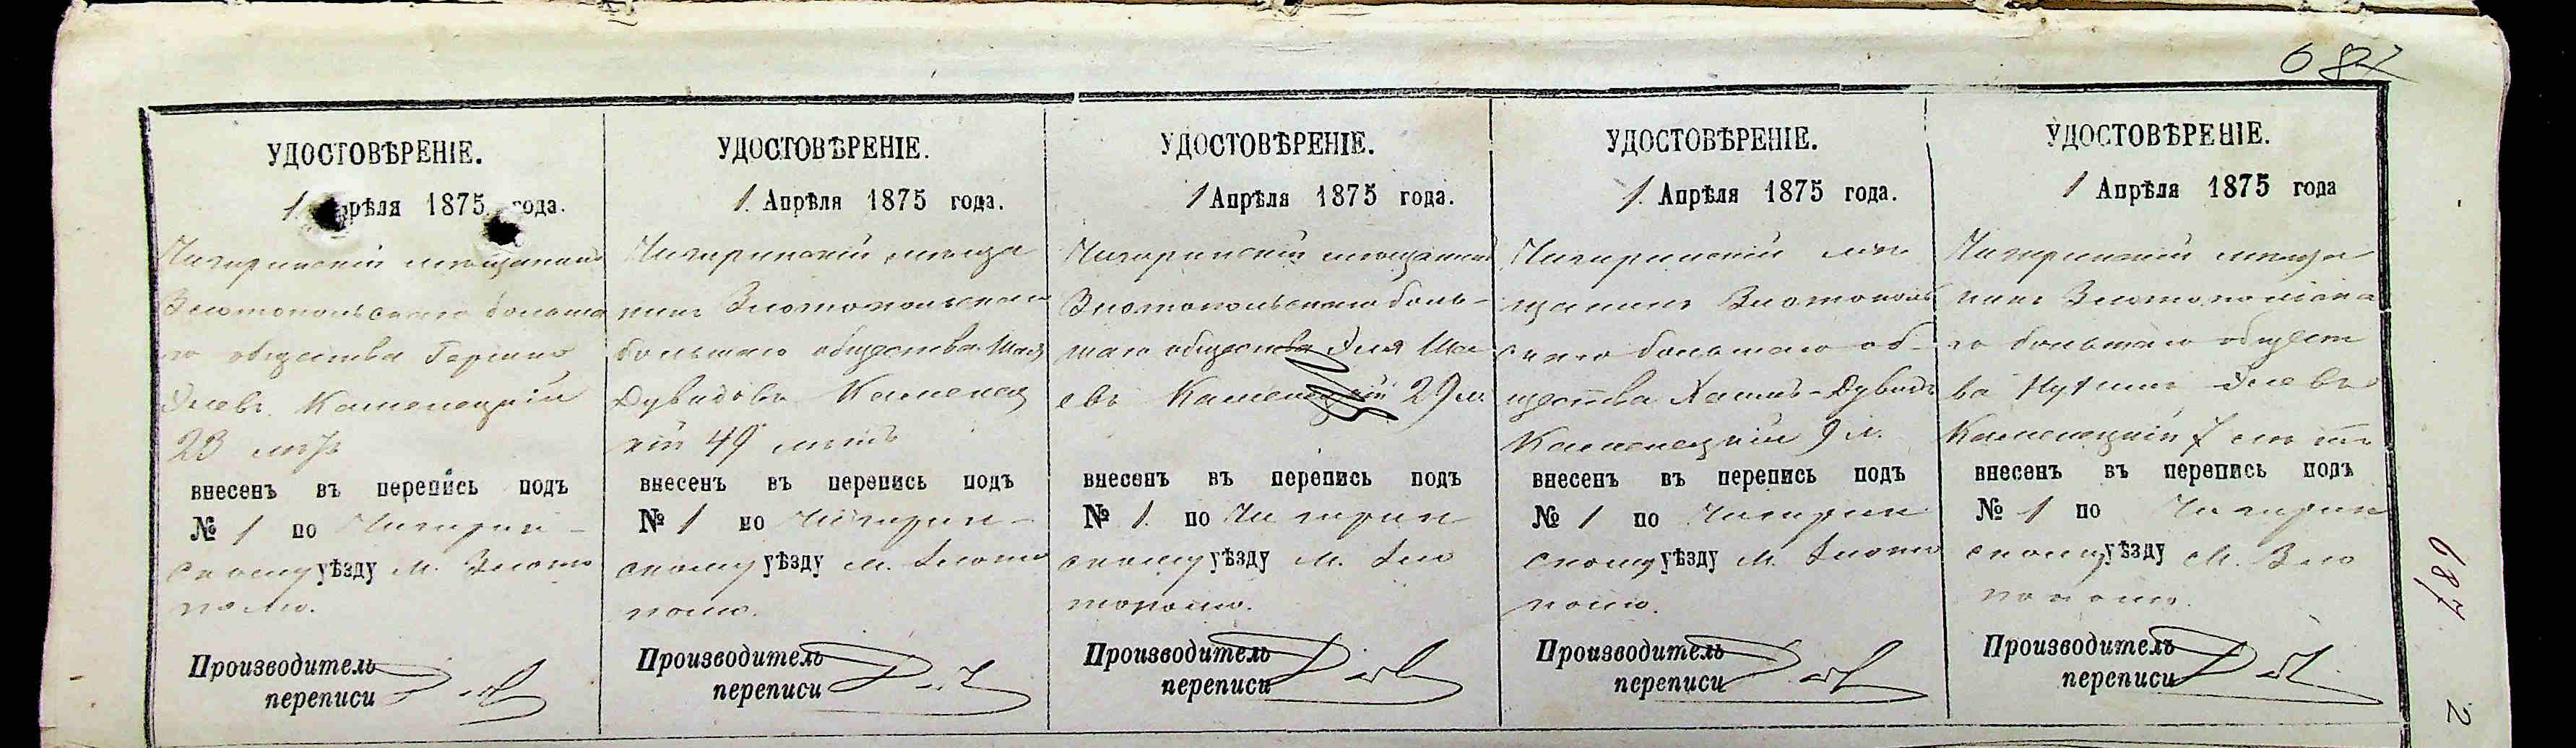 687
УДОСТОВѢРЕНІЕ.
1 Апрѣля 1875 года.
Чигиринскій мѣщанинъ
Златопольскаго большa
го общества Гершко
Элевъ Каменецкій
23 лѣтъ
внесенъ въ перепись подъ
№ 1 по Чигирин-
скому уѣзду м. Злато
полю.
Производитель
переписи
УДОСТОВѢРЕНІЕ.
1. Апрѣля 1875 года.
Чигиринскій мѣща
нинъ Златопольскаго
большаго общества
Дувидовъ Каменец
кій 49 лѣтъ
внесенъ въ перепись подъ
№ 1 по Чигирин-
скому уѣзду м. Злато
полю.
Производитель
переписи
УДОСТОВѢРЕНІЕ.
1 Апрѣля 1875 года.
Чигиринскій мѣщанинъ
Златопольскаго боль-
шаго общества Эля
евъ Каменецкій 29 л.
внесенъ въ перепись подъ
№ 1. по Чигирин
скому уѣзду м. Зла
тополю.
Производитель
переписи
УДОСТОВѢРЕНІЕ.
1. Апрѣля 1875 года.
Чигиринскій мѣ
щанинъ Златополь
скаго большаго об-
щества Хаимъ-Дувидъ
Каменецкій 9 л.
внесенъ въ перепись подъ
№ 1 по Чигирин
скому уѣзду м. Злато
полю.
Производитель
переписи
УДОСТОВѢРЕНІЕ.
1 Апрѣля 1875 года
Чигиринскій мѣща
нинъ Златопольска
го большаго общест
ва Элевъ
Каменецкій 7 лѣтъ
внесенъ въ перепись подъ
№ 1 по Чигирин
скому уѣзду м. Зла
пополю.
Производитель
переписи
687
2